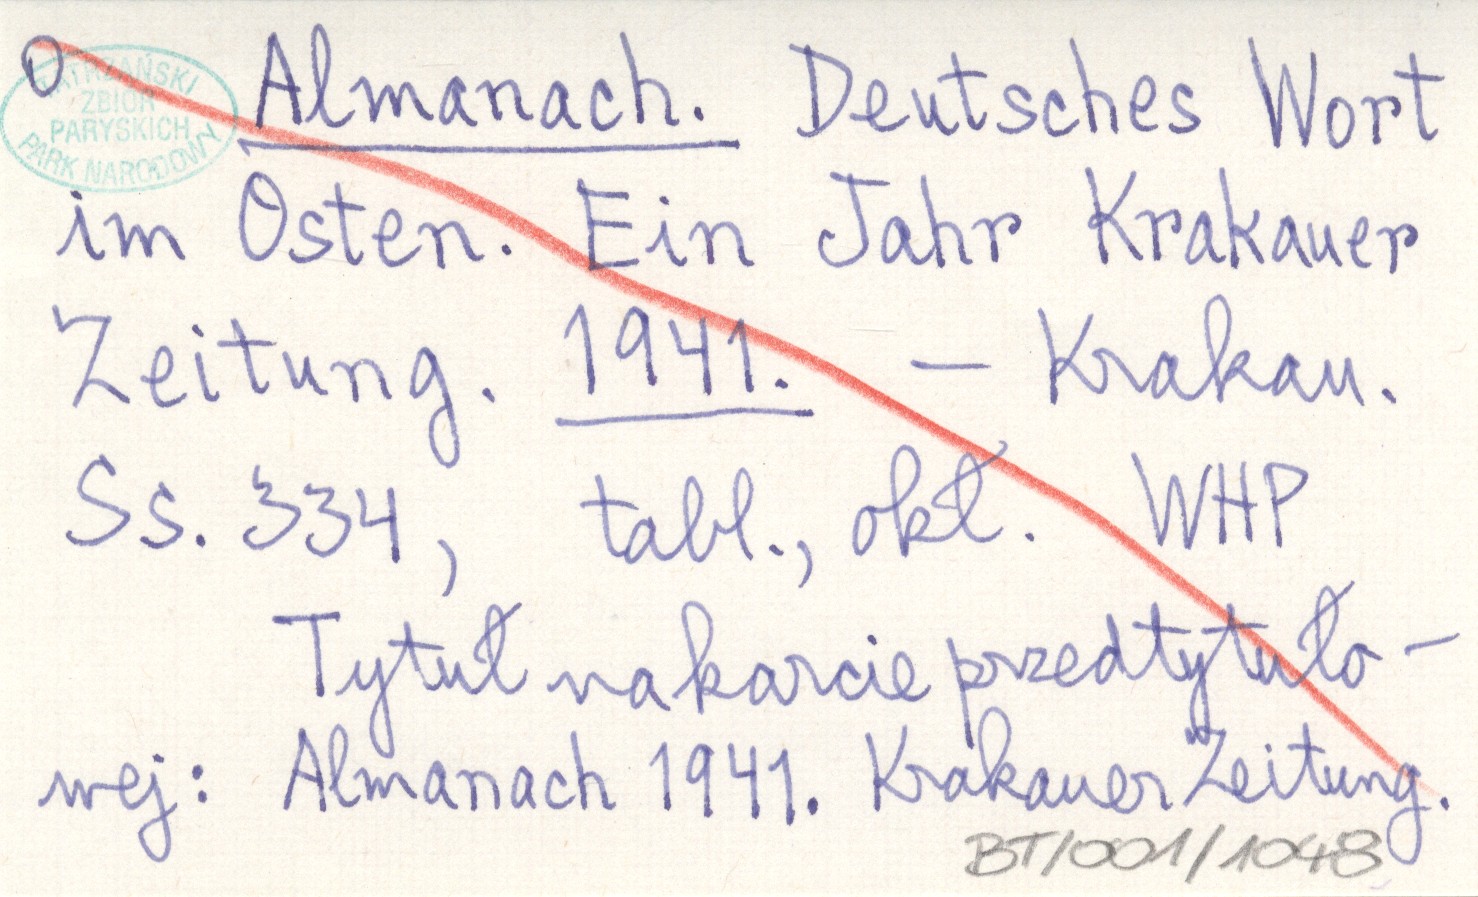 O
TATRZAŃSKI
ZBIÓR
PARYSKICH
PARK NARODOWY
Almanach. Deutsches Wort
im Osten. Ein Jahr Krakauer
Zeitung. 1941. – Krakau.
Ss. 334, tabl., okł. WHP
Tytuł na karcie przedtytuło-
wej: Almanach 1941. Krakauer Zeitung.
BT/001/1048